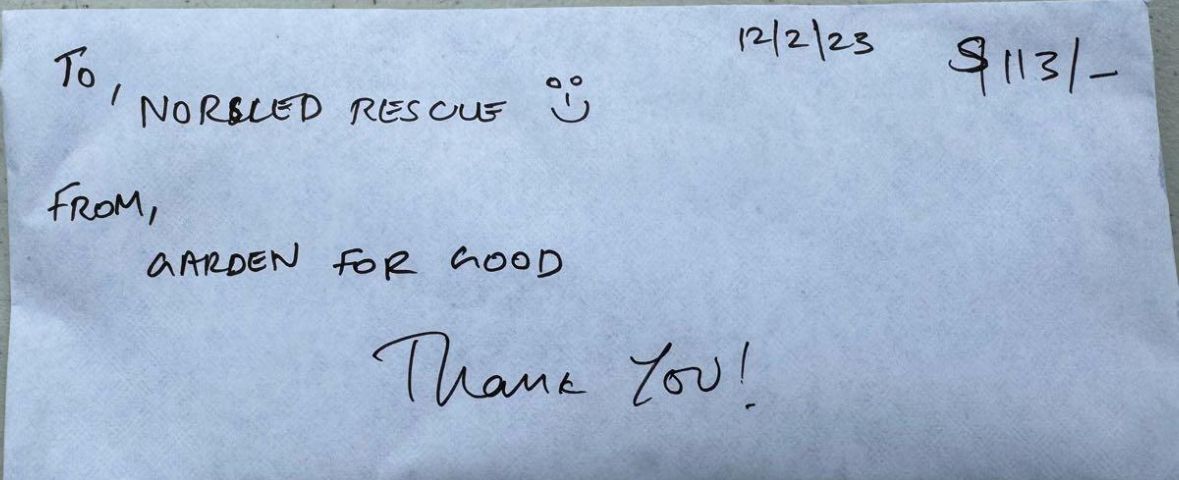 12/2/23
$113/-
To,
NORSLED RESCUE
FROM,
GARDEN FOR GOOD
Thank You!